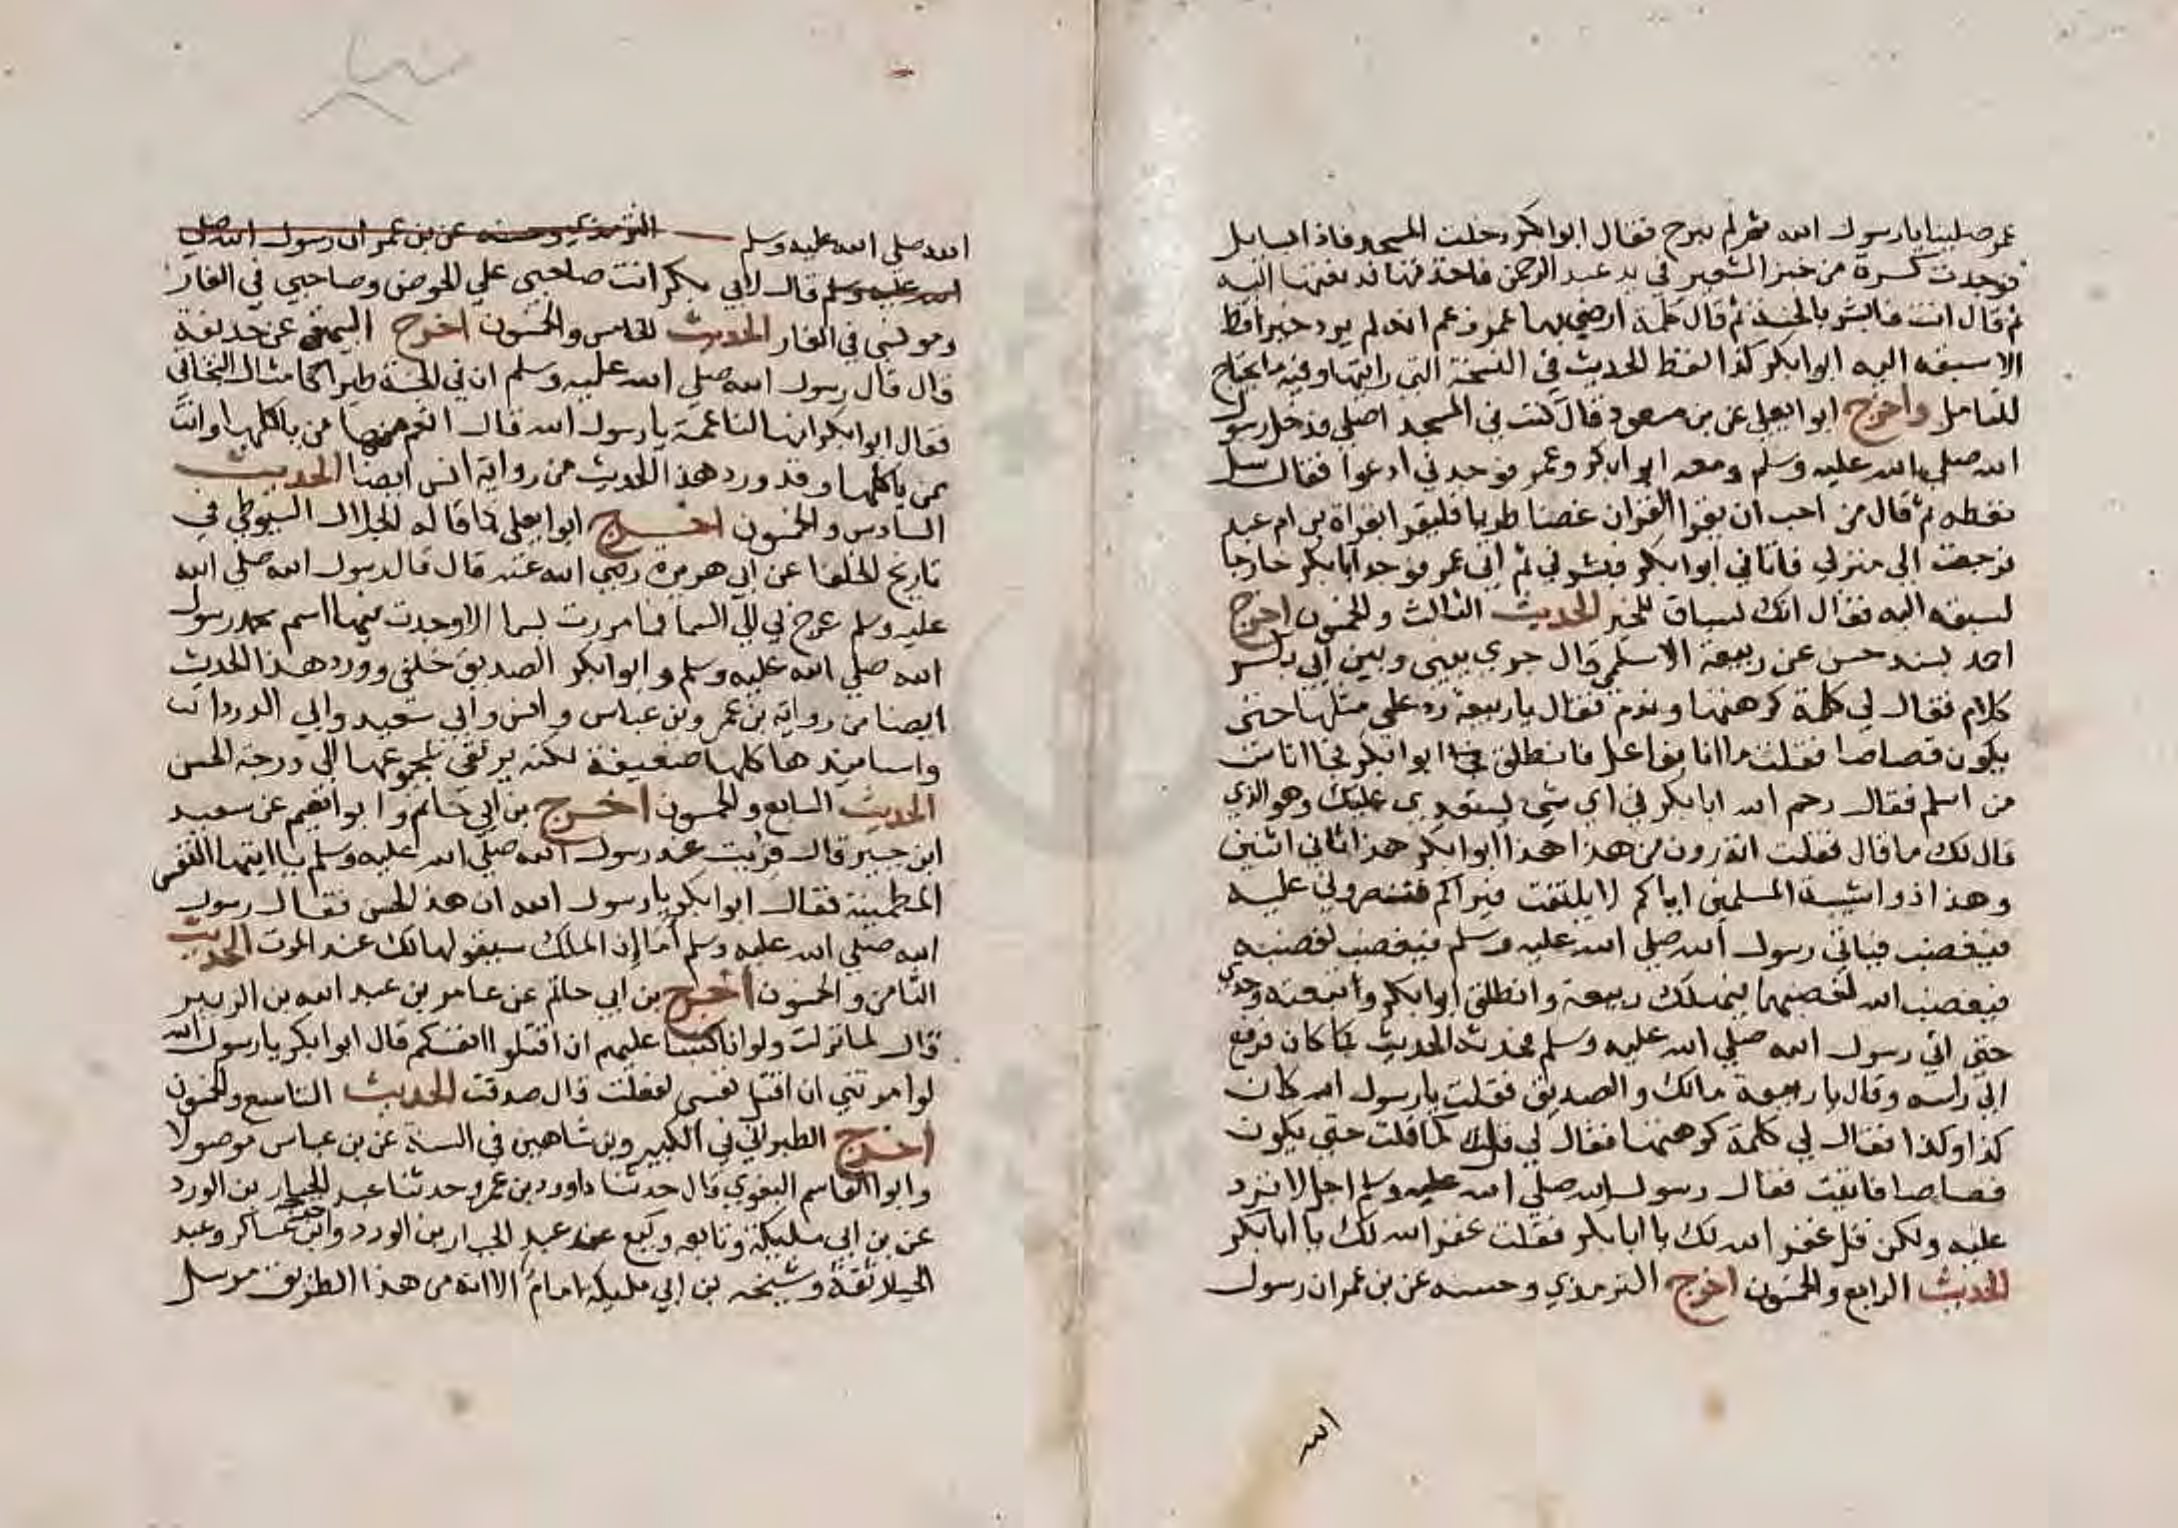 عمر صلينا يا رسول الله ثم لم نبرح فقال ابوا بكر دخلت المسجد فاذا السايل
فوجدت كسرة من خبز الشعير في يد عبد الرحمن فاخذتها فدفعتها اليه
ثم قال انت فابشر بالجنة ثم قال كلمة ارضي بها عمر زعم انه لم يرد خيرا قط
الا سبقه اليه ابوا بكر كذا لفظ الحديث في النسخة التي رايتها وفيه ما يحتاج
للتامل واخرج ابوا يعلي عن بن مسعود قال كنت في المسجد اصلي فدخل رسول
الله صلي الله عليه وسلم ومعه ابوا بكر وعمر فوجدني ادعوا فقال سل
تعطه ثم قال من احب ان يقرا القران غضا طريا فليقرا بقراة بن ام عبد
فرجعت الى منزلي فاتاني ابوا بكر فبشرني ثم اتي عمر فوجد ابا بكر خارجا
لسبقه اليه فقال انك لسباق للخير الحديث الثالث والخمسون اخرج
احمد بسند حسن عن ربيعة الاسلمي قال جري بيني وبين ابي بكر
كلام فقال لي كلمة كرهتها وندم فقال يا ربيعة رد علي مثلها حتى
يكون قصاصا فقلت ما انا بفاعل فانطلق ابوا بكر فجا اناس
من اسلم فقال رحم الله ابا بكر في اي شي يستعدي عليك وهو الذي
قال لك ما قال فقلت اتدرون من هذا هذا ابوا بكر هذا ثاني اثنين
وهذا ذوا شيبة المسلمين اياكم لا يلتفت فيراكم تنصروني عليه
فيغضب فياتي رسول الله صلي الله عليه وسلم فيغضب لغضبه
فيغضب الله لغضبهما فيهلك ربيعة وانطلق ابوا بكر واتبعته وحدي
حتى اتي رسول الله صلي الله عليه وسلم فحدثه الحديث كما كان فرفع
الي راسه وقال يا ربيعة مالك والصديق فقلت يا رسول الله كان
كذا وكذا فقال لي كلمة كرهتها فقال لي قل كما قلت حتى يكون
قصاصا فابيت فقال رسول الله صلي الله عليه وسلم اجل لا ترد
عليه ولكن قل غفر الله لك يا ابا بكر فقلت غفر الله لك يا ابا بكر
الحديث الرابع والخمسون اخرج الترمذي وحسنه عن بن عمر ان رسول
الله
الله صلي الله عليه وسلم الترمذي وحسنه عن بن عمر ان رسول الله صلي
الله عليه وسلم قال لابي بكر انت صاحبي علي الحوض وصاحبي في الغار
ومونسي في الغار الحديث الخامس والخمسون اخرج البيهقي عن حذيفة
قال قال رسول الله صلي الله عليه وسلم ان في الجنة طيرا كامثال البخاتي
فقال ابوا بكر انها لناعمة يا رسول الله قال انعم منها من ياكلها وانت
ممن ياكلها وقد ورد هذا الحديث من رواية انس ايضا الحديث
السادس والخمسون اخرج ابوا يعلي كما قاله الجلال السيوطي في
تاريخ الخلفا عن ابي هريرة رضي الله عنه قال قال رسول الله صلي الله
عليه وسلم عرج بي الي السما فما مررت بسما الا وجدت فيها اسم محمد رسول
الله صلي الله عليه وسلم وابوا بكر الصديق خلفي وورد هذا الحديث
ايضا من رواية بن عمر وبن عباس وانس وابي سعيد وابي الدردا
واسانيدها كلها ضعيفة لكنه يرتقي بمجموعها الي درجة الحسن
الحديث السابع والخمسون اخرج بن ابي حاتم وابوا نعيم عن سعيد
ابن جبير قال قريت عند رسول الله صلي الله عليه وسلم يا ايتها النفس
المطمينة فقال ابوا بكر يا رسول الله ان هذا لحسن فقال رسول
الله صلي الله عليه وسلم أما إن الملك سيقولها لك عند الموت الحديث
الثامن والخمسون اخرج بن ابي حاتم عن عامر بن عبد الله بن الزبير
قال لما نزلت ولو انا كتبنا عليهم ان اقتلوا انفسكم قال ابوا بكر يا رسول الله
لوا مرتني ان اقتل نفسي لفعلت قال صدقت الحديث التاسع والخمسون
اخرج الطبراني في الكبير وبن شاهين في السنة عن بن عباس موصولا
وابوا القاسم البغوي قال حدثنا داوود بن عمرو حدثنا عبد الجبار بن الورد
عن بن ابي مليكة وتابعه وكيع عن عبد الجبار بن الورد وابن عساكر وعبد
الجبار ثقة وشيخه بن ابي مليكة امام الا انه من هذا الطريق مرسل